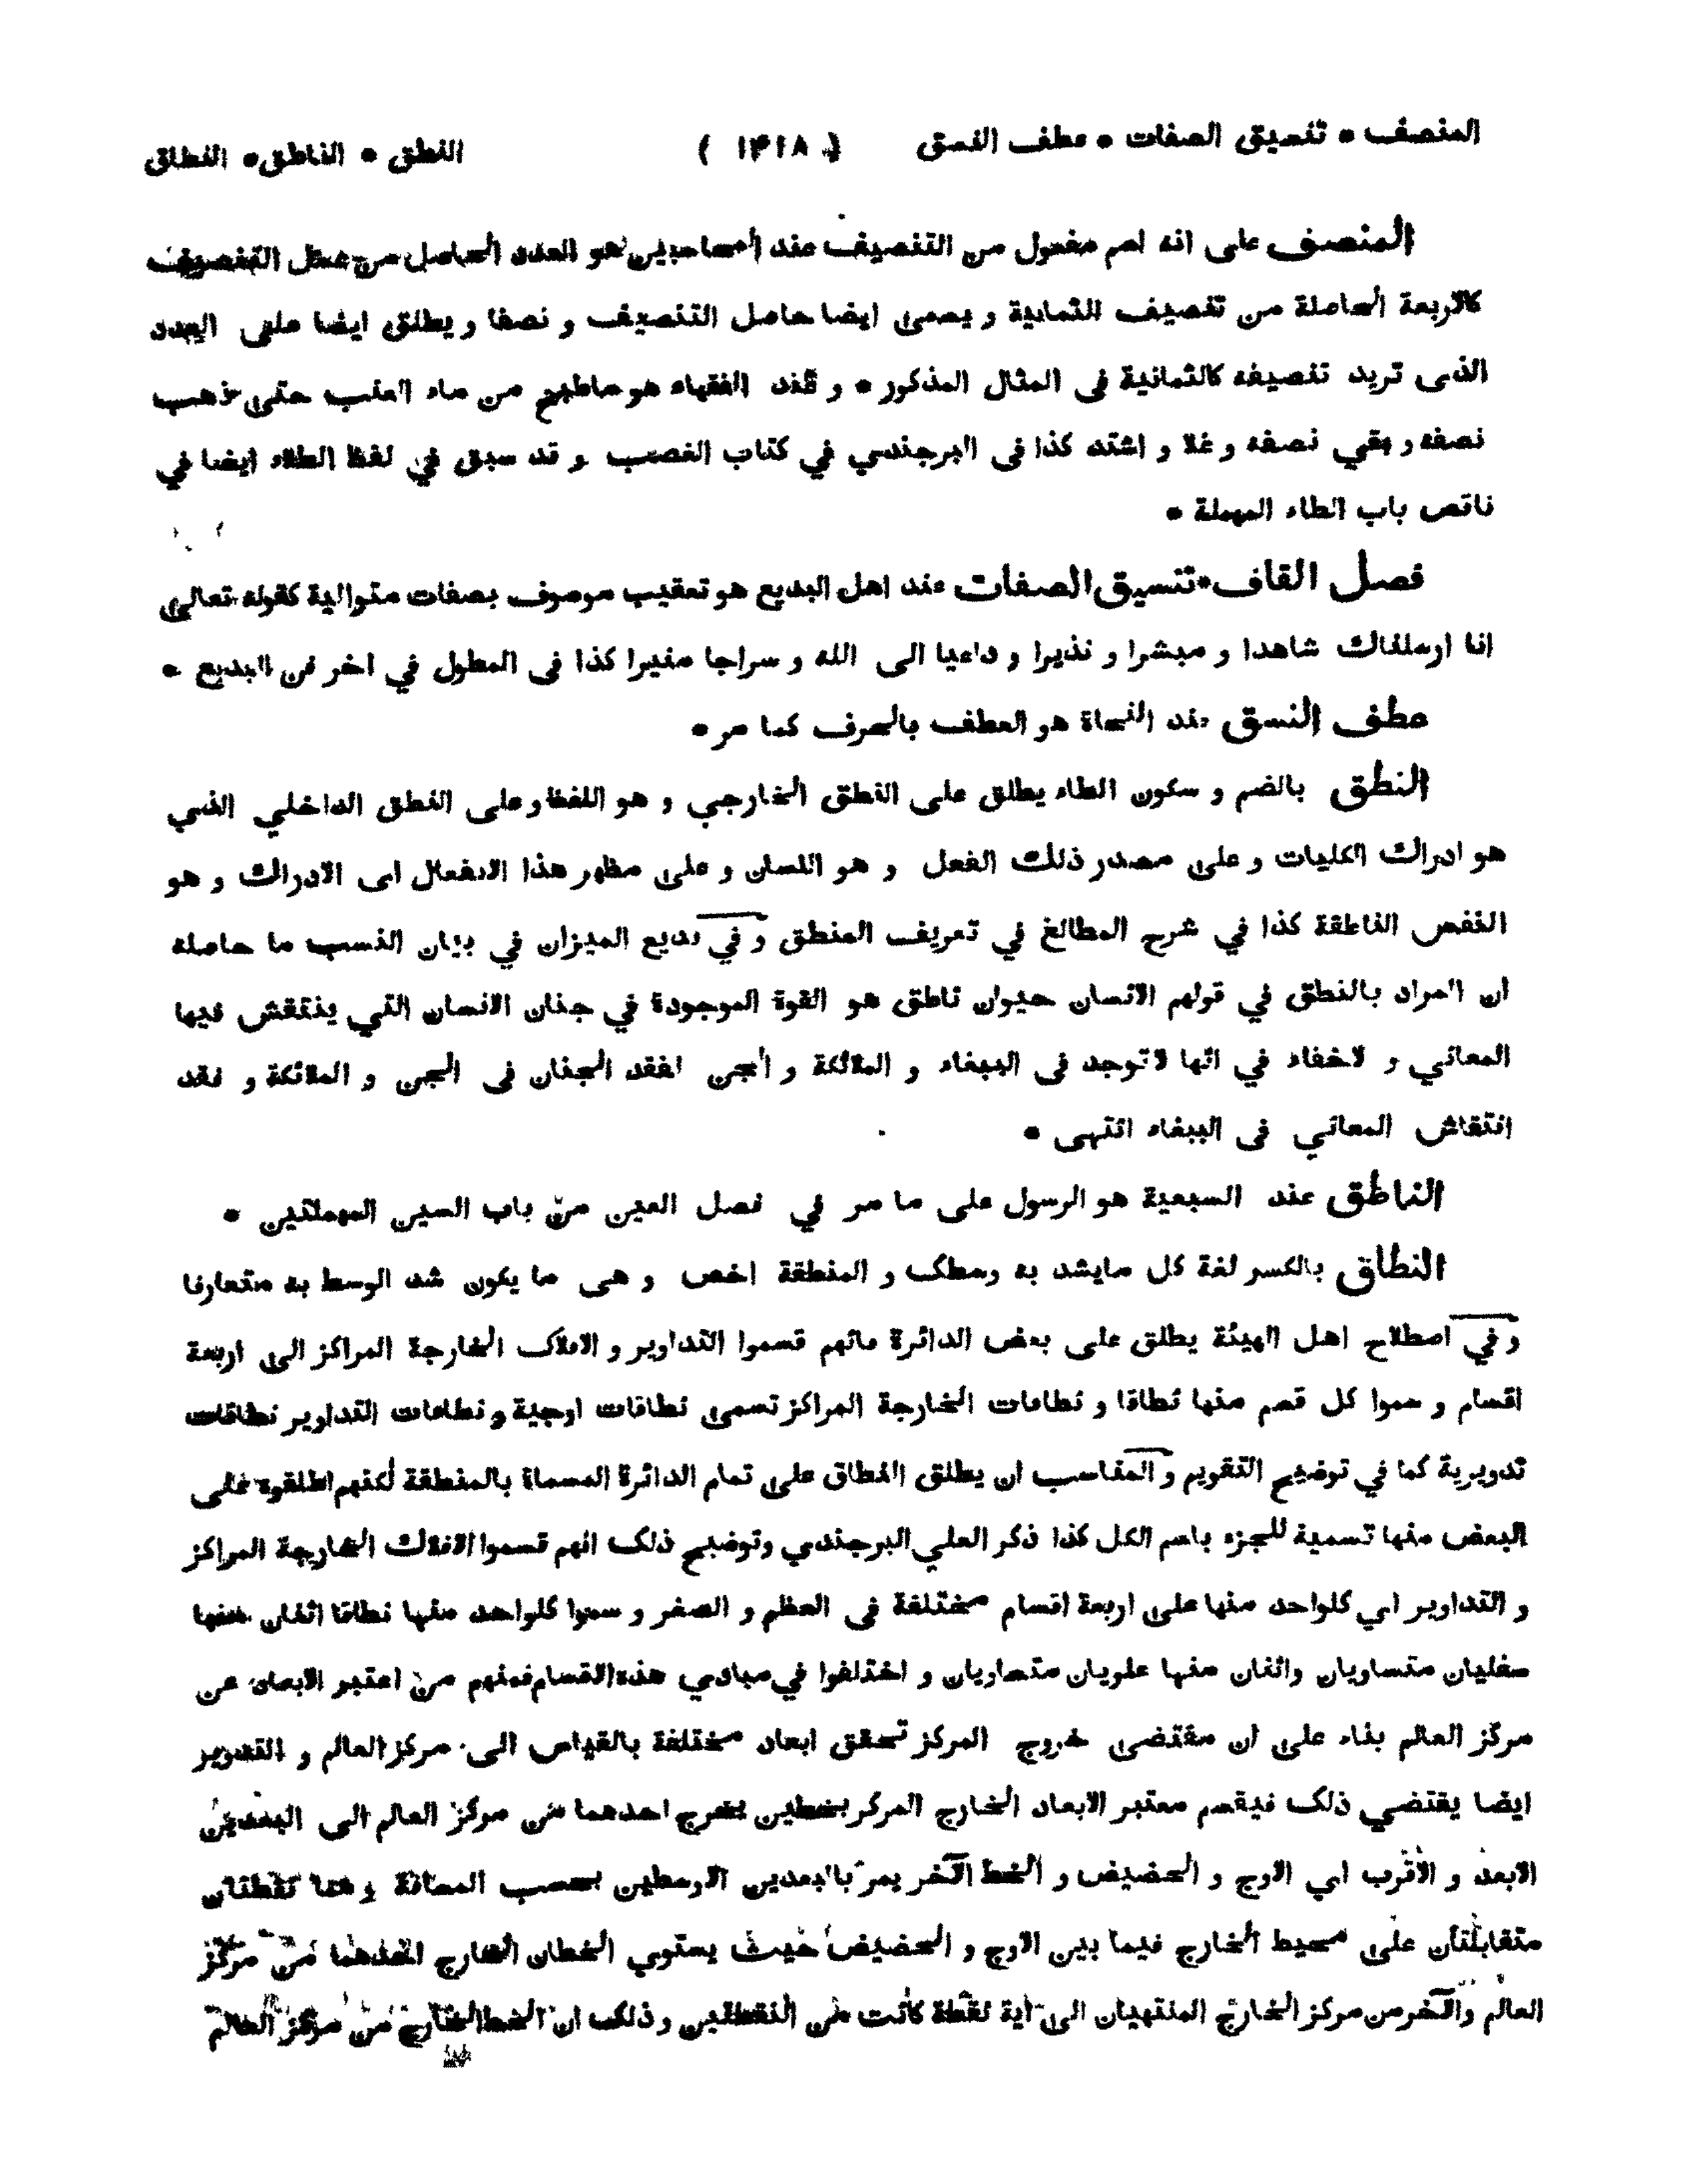 المنصف * تنسيق الصفات * عطف النسق ( ١۴١٨ ) النطق * الناطق * النطاق
المنصف على انه اسم مفعول من التنصيف عند المحاسبين هو العدد الحاصل من عمل التنصيف
كالاربعة الحاصلة من تنصيف الثمانية و يسمى ايضا حاصل التنصيف و نصفا و يطلق ايضا على العدد
الذى تريد تنصيفه كالثمانية فى المثال المذكور * و عند الفقهاء هو ماطبخ من ماء العنب حتى ذهب
نصفه و بقي نصفه و غلا و اشتد كذا فى البرجندي في كتاب الغصب و قد سبق في لفظ الطلاء ايضا في
ناقص باب الطاء المهملة *
فصل القاف * تنسيق الصفات عند اهل البديع هو تعقيب موصوف بصفات متوالية كقوله تعالى
انا ارسلناك شاهدا و مبشرا و نذيرا و داعيا الى الله و سراجا منيرا كذا فى المطول في اخر فن البديع *
عطف النسق عند النحاة هو العطف بالحرف كما مر *
النطق بالضم و سكون الطاء يطلق على النطق الخارجي و هو اللفظ و على النطق الداخلي الذي
هو ادراك الكليات و على مصدر ذلك الفعل و هو اللسان و على مظهر هذا الانفعال اى الادراك و هو
النفس الناطقة كذا في شرح المطالع في تعريف المنطق و في بديع الميزان في بيان النسب ما حاصله
ان المراد بالنطق في قولهم الانسان حيوان ناطق هو القوة الموجودة في جنان الانسان التي ينتقش فيها
المعاني و لاخفاء في انها لاتوجد فى الببغاء و الملائكة و الجن لفقد الجنان فى الجن و الملائكة و فقد
انتقاش المعاني فى الببغاء انتهى *
الناطق عند السبعية هو الرسول على ما مر في فصل العين من باب السين المهملتين *
النطاق بالكسر لغة كل مايشد به وسطك و المنطقة اخص و هى ما يكون شد الوسط به متعارفا
و في اصطلاح اهل الهيئة يطلق على بعض الدائرة فانهم قسموا التداوير و الافلاك الخارجة المراكز الى اربعة
اقسام و سموا كل قسم منها نطاقا و نطاقات الخارجة المراكز تسمى نطاقات اوجية و نطاقات التداوير نطاقات
تدويرية كما في توضيح التقويم و المناسب ان يطلق النطاق على تمام الدائرة المسماة بالمنطقة لكنهم اطلقوه على
البعض منها تسمية للجزء باسم الكل كذا ذكر العلي البرجندي وتوضيح ذلك انهم قسموا الافلاك الخارجة المراكز
و التداوير اي كلواحد منها على اربعة اقسام مختلفة فى العظم و الصغر و سموا كلواحد منها نطاقا اثنان منها
سفليان متساويان واثنان منها علويان متساويان و اختلفوا في مبادي هذه القسام فمنهم من اعتبر الابعاد عن
مركز العالم بناء على ان مقتضى خروج المركز تحقق ابعاد مختلفة بالقياس الى مركز العالم و التدوير
ايضا يقتضي ذلك فيقسم معتبر الابعاد الخارج المركز بخطين يخرج احدهما من مركز العالم الى البعدين
الابعد و الاقرب اي الاوج و الحضيض و الخط الآخر يمر بالبعدين الاوسطين بحسب المسافة و هما نقطتان
متقابلتان على محيط الخارج فيما بين الاوج و الحضيض حيث يستوي الخطان الخارج احدهما من مركز
العالم والآخر من مركز الخارج المنتهيان الى اية نقطة كانت من النقطتين و ذلك ان الخط الخارج من مركز العالم